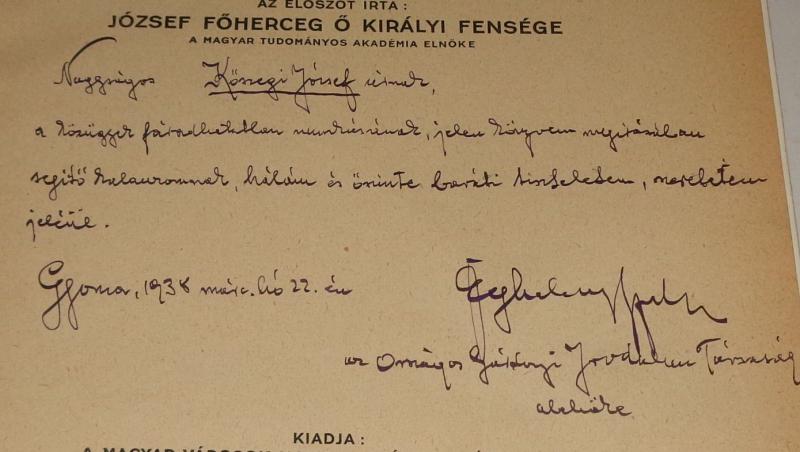 AZ ELŐSZÓT ÍRTA :
JÓZSEF FŐHERCEG Ő KIRÁLYI FENSÉGE
A MAGYAR TUDOMÁNYOS AKADÉMIA ELNÖKE
Nagyságos Kőszegi József úrnak,
a közügyek fáradhatatlan munkásának, jelen könyvem megírásában
segítő kalauzomnak, hálám és őszinte baráti tiszteletem, szeretetem
jeléül.
Gyoma, 1938 márc. hó 22. én
az Országos Gárdonyi Irodalmi Társaság
alelnöke
KIADJA :
A MAGYAR